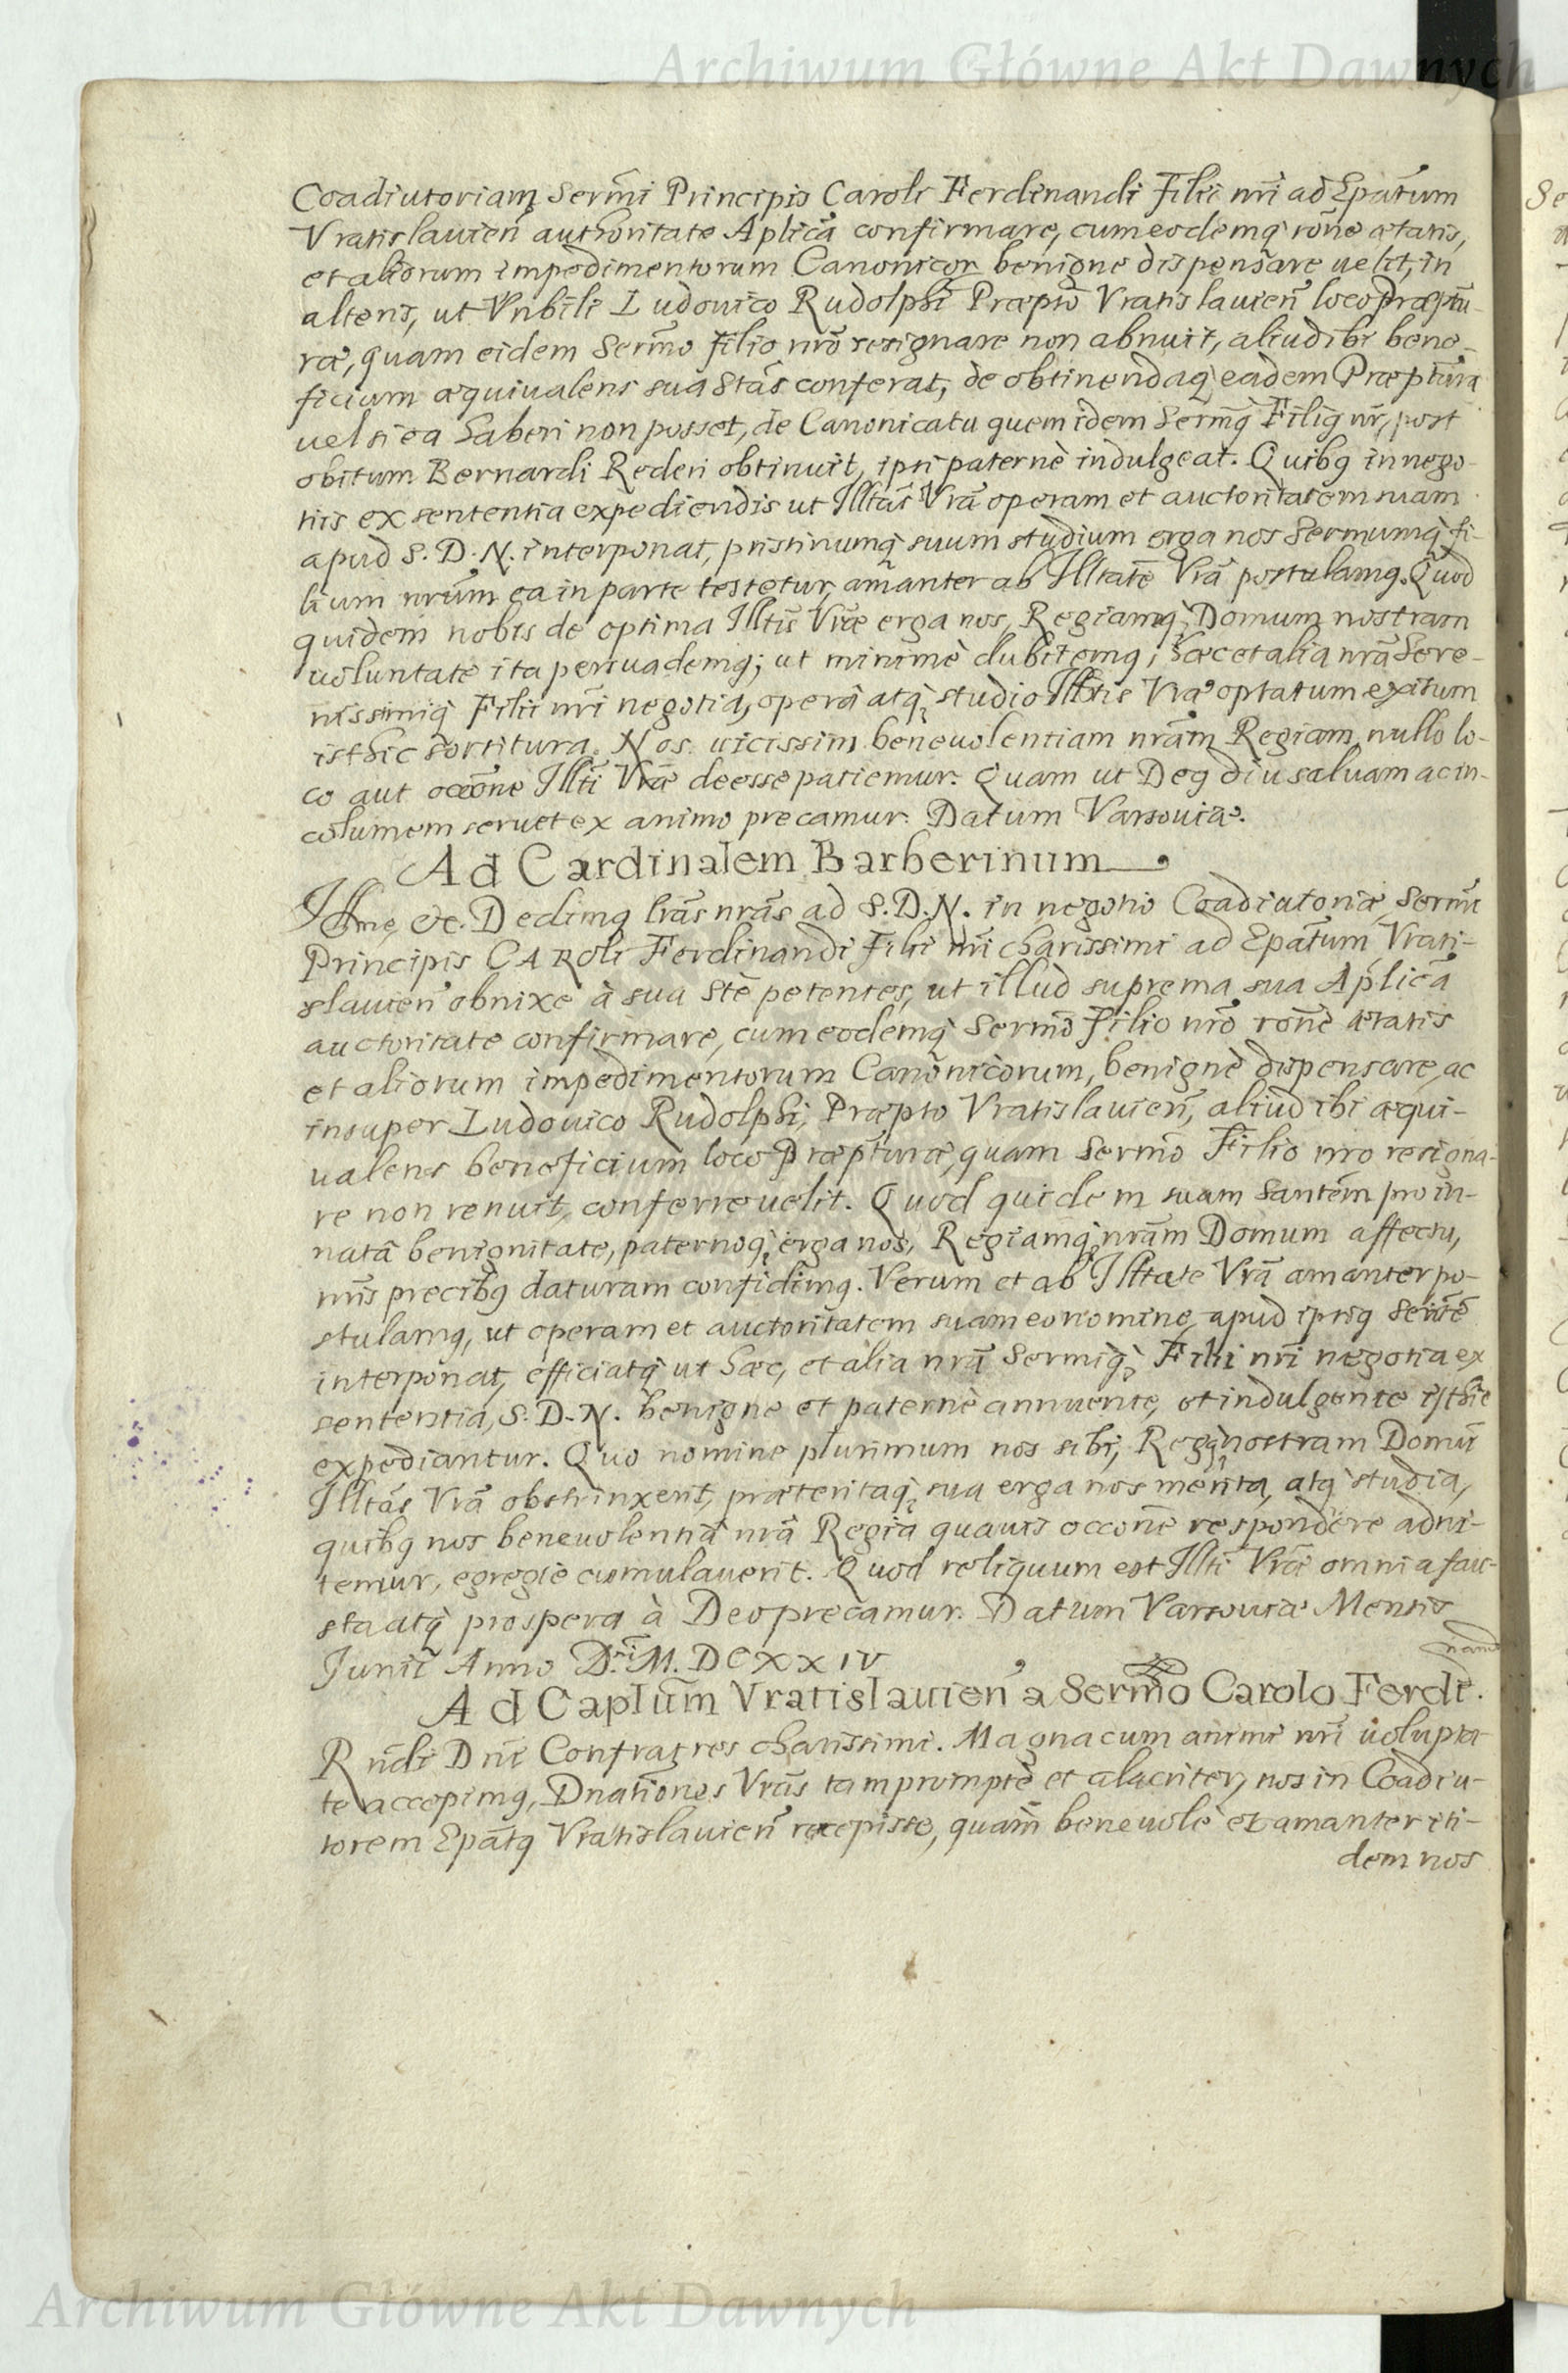 Archiwum Główne Akt Dawnych
Coadiutoriam Serm̃i Principis Caroli Ferdinandi Filii nr̃i ad Epãtum
Vratislauien̄ authoritate Aplicã confirmare, cum eodemq̨ rõne ætatis,
et aliorum impedimentorum Canonicor benigne dispensare uelit, in
alteris, ut Vnbili Ludouico Rudolphi Præptõ Vratislauien̄ loco Præptu-
ræ, quam eidem Serm̃o filio nr̃o resignare non abnuit, aliud ibi bene-
ficium æquiualens sua Stãs conferat, de obtinendaq̨ eadem Præpturã
uel si ea haberi non posset, de Canonicatu quem idem Serm̃q̨ Filiq̨ nr̃, post
obitum Bernardi Rederi obtinuit, ipsi paternè indulgeat. Quibq̨ in nego-
tiis ex sententia expediendis ut Illtãs Vrã operam et auctoritatem suam
apud S. D. N. interponat, pristinumq̨ suum studium erga nos Sermumq̨ fi-
lium nrũm ea in parte testetur, amanter ab Illtatẽ Vrã postulamq̨. Quod
quidem nobis de optima Illtis̃ Vrãe erga nos, Regiamq̨ Domum nostram
uoluntate ita persuademq̨; ut minimè dubitemq̨, hæc et alia nrã Sere-
nissimiq̨ Filii nr̃i negotia, operâ atq̨ studio Illtis Vræ optatum exitum
isthic sortitura. Nos uicissim beneuolentiam nrãm Regiam nullo lo-
co aut occõne Illtĩ Vrãe deesse patiemur. Quam ut Deq̨ diu saluam ac in-
columem seruet ex animo precamur. Datum Varsouiæ.
Ad Cardinalem Barberinum
Illme, &c. Dedimq̨ lrãs nrãs ad S. D. N. in negotio Coadiutoriæ Serm̃i
Principis CARoli Ferdinandi Filii nr̃i charissimi ad Epãtum Vrati-
slauien̄ obnixe à sua Stẽ petentes, ut illud suprema sua Aplicã
auctoritate confirmare, cum eodemq̨ Serm̃o Filio nr̃o rõne ætatis
et aliorum impedimentorum Canonicorum, benignè dispensare, ac
insuper Ludouico Rudolphi, Præpto Vratislauien̄, aliud ibi æqui-
ualens beneficium loco Præpturæ, quam Serm̃o Filio nr̃o resigna-
re non renuit, conferre uelit. Quod quidem suam Santẽm pro in-
natâ benignitate, paternoq̨ erga nos, Regiamq̨ nrãm Domum affectu,
nr̃is precibq̨ daturam confidimq̨. Verum et ab Illtate Vrã amanter po-
stulamq̨, ut operam et auctoritatem suam eo nomine apud ipsiq̨
interponat, efficiatq̨ ut hæc, et alia nrã Sermiq̨ Filii nr̃i negotia ex
sententia, S. D. N. benigne et paternè annuente, et indulgente isthic
expediantur. Quo nomine plurimum nos sibi, Regq̨ nostram Domũ
Illtãs Vrã obstrinxerit, præteritaq̨ sua erga nos merita, atq̨ studia,
quibq̨ nos beneuolentiã nrã Regiâ quauis occõne respondere adni-
temur, egregie cumulauerit. Quod reliquum est Illtĩ Vrãe omnia fau-
sta atq̨ prospera à Deo precamur. Datum Varsouiæ Mensis
Junii Anno Dn̄i M. DCXXIV
Ad Caplum̃ Vratislauien̄ a Serm̃o Carolo Ferdi
nand
Rñdi Dnĩ Confratres charissimi. Magna cum animi nr̃i uolupta
te accepimq̨, Dnatiõnes Vrãs tam promptè et alacriter, nos in Coadiu-
torem Epãtq̨ Vratislauien̄ recepisse, quàm beneuolè et amanter iti-
dem nos
Archiwum Główne Akt Dawnych